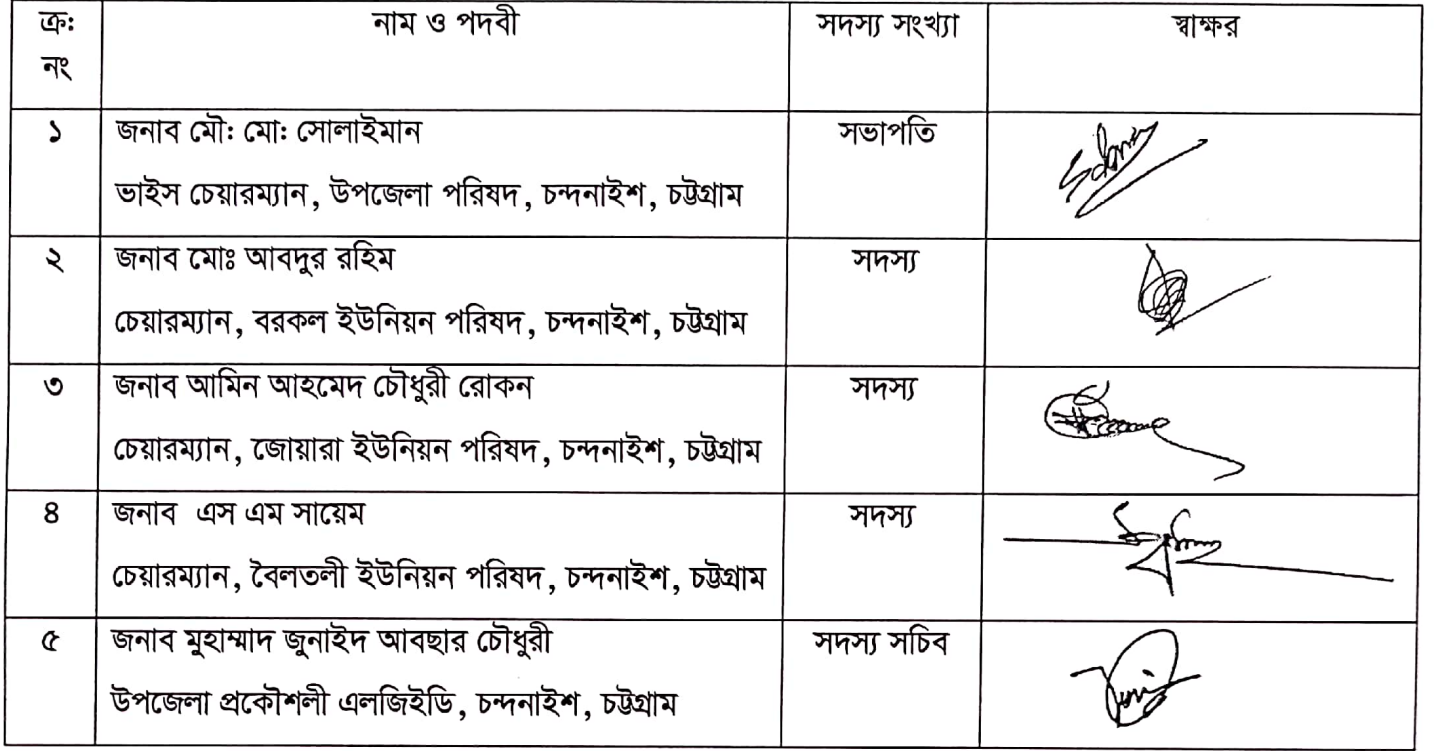 ক্র: নাম ও পদবী সদস্য সংখ্যা স্বাক্ষর
নং
১ জনাব মৌঃ মো: সোলাইমান সভাপতি
ভাইস চেয়ারম্যান, উপজেলা পরিষদ, চন্দনাইশ, চট্টগ্রাম
২ জনাব মোঃ আবদুর রহিম সদস্য
চেয়ারম্যান, বরকল ইউনিয়ন পরিষদ, চন্দনাইশ, চট্টগ্রাম
৩ জনাব আমিন আহমেদ চৌধুরী রোকন সদস্য
চেয়ারম্যান, জোয়ারা ইউনিয়ন পরিষদ, চন্দনাইশ, চট্টগ্রাম
৪ জনাব এস এম সায়েম সদস্য
চেয়ারম্যান, বৈলতলী ইউনিয়ন পরিষদ, চন্দনাইশ, চট্টগ্রাম
৫ জনাব মুহাম্মাদ জুনাইদ আবছার চৌধুরী সদস্য সচিব
উপজেলা প্রকৌশলী এলজিইডি, চন্দনাইশ, চট্টগ্রাম